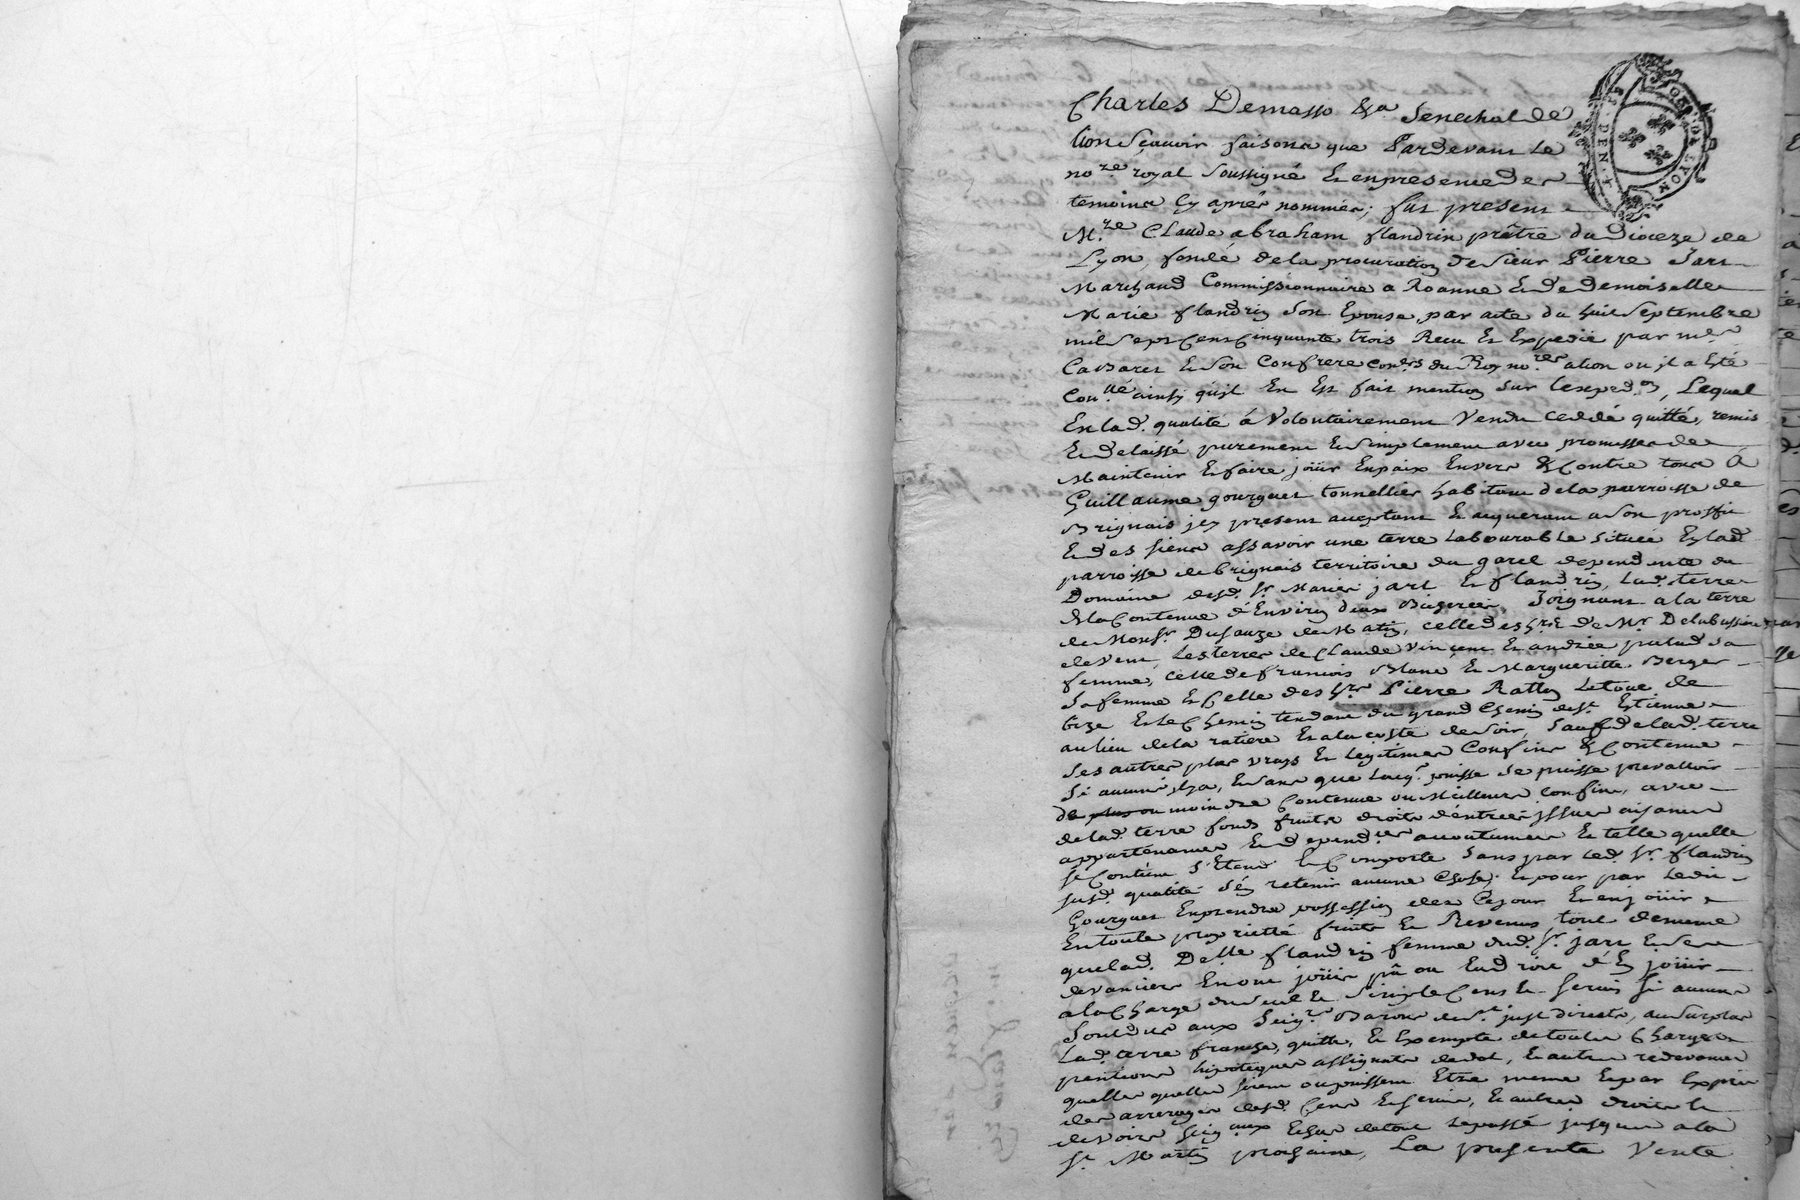 Charles Demasso &a. Senechal de
lion Sçavoir faisons que Pardevant Le
no.re royal Soussigné Et en presence des
temoins Cy aprés nommés; fut present
M.re Claude abraham flandrin prêtre du Dioceze de
Lyon, fondé de la procuration de Sieur Pierre Jars
Marchand Commissionnaire a Roanne Et de demoiselle
Marie flandrin Son Epouse, par acte du huit Septembre
mil Sept Cent Cinquante trois Recu Et Expedié par m.es
Et Son Confrere Con.ers du Roy no.res alion ou jl a Eté
Con.llé ainsy qu'jl En Est fait mention Sur l'exped.on, Lequel
En lad. qualité á Volontairement Vendu Ceddé quitté, remis
Et delaissé purement Et Simplement avec promesses de
Maintenir Et faire joüir En paix Envers & Contre tous Á
Guillaume gourguet tonnellier habitant de la parroisse de
Brignais jcy present acceptant Et acquerant a Son proffit
Et des siens assavoir une terre Labourable Située En lad.
parroisse de brignais territoire du garel dependante du
Domaine desd. Sr. Mariés jars Et flandrin, Lad. terre
de la Contenue d'Environ deux Bicherées, Joignant a la terre
de Mons.r Dusauze de Matin, celle des h.rs de Mr. Delabussiere
de vent, Les terres de Claude vincent Et andrée sa
femme, celle de francois Blanc Et Margueritte Berger
Sa femme Et Celle des h.rs Pierre Ratton Letout de
bize Et Le Chemin tendant du grand Chemin de St. Estienne
au lieu de la ratiere Et a la coste de Soir, Sauf de lad. terre
Ses autres plus vrays Et Legitimes Confins & Contenue
Si aucuns jl y a, Et Sans que L'acq.r puisse Se puisse prevalloir
de plus ou moindre Contenue ou Meilleurs Confins, avec
de lad. terre fonds fruits droits d'éntrées jssues aisances
appartenances Et depend.ces accoutumées Et telle quelle
se Contient S'Etend Et Comporte Sans par led. Sr. flandrin
susd. qualité S'én retenir aucune Chose; Et pour par Ledit
Gourguet En prendre possession dez Cejour Et en joüir
En toute proprietté fruits Et Revenus tout de meme
que lad. Delle flandrin femme dud. Sr. jars Et Ses
devanciers En ont joüir pû ou Eu droit d'En joüir
a la Charge du Seul Et Simple Cens Et Servis Si aucuns
Sont dus aux Seig.rs Barons de St. just directs, au Surplus
Lad. terre franche, quitte, Et Exempte de toutes Charges
pentions hipoteques assignats de dot, Et autres redevances
quelles quelles Soient ou puissent Etre meme Et par Exprès
des arrerages desd. Cens Et Servis, Et autres droits Et
devoirs Seig.aux Echus de tout Le passé jusques a la
St. Martin prochaine, La presente Vente